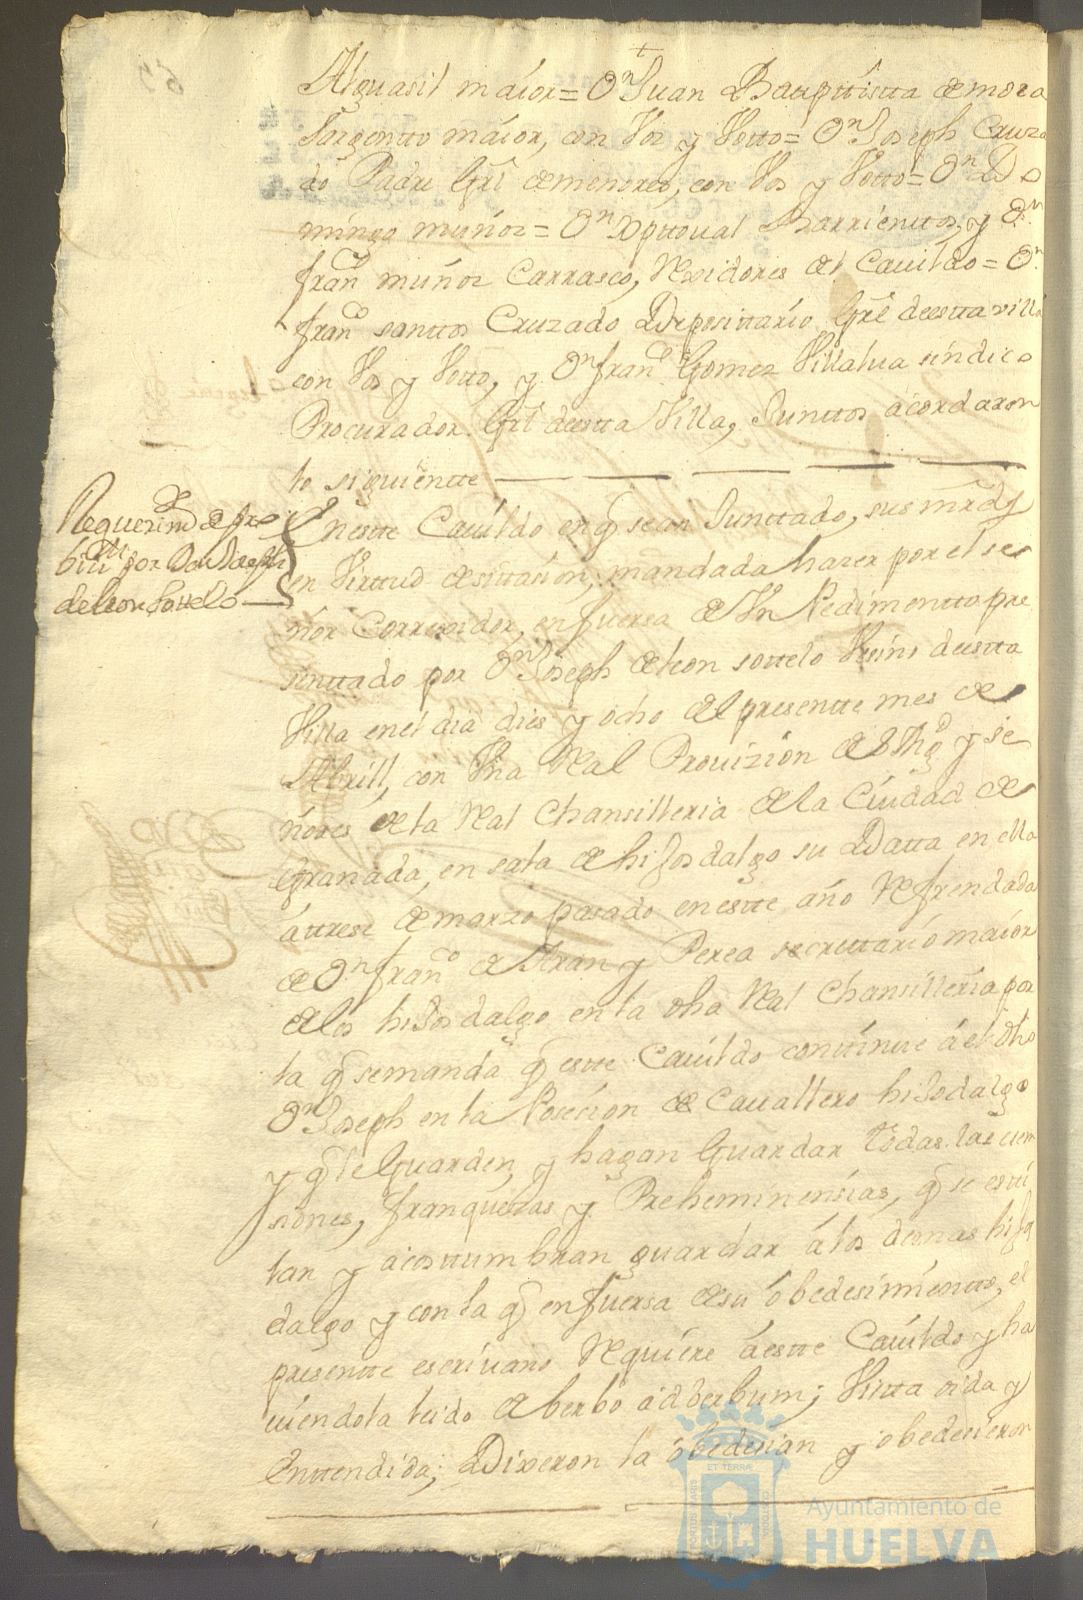 Alguasil maior= Dn Juan Bauptistta de mora
Sargentto maior, con Vos y Votto= Dn Joseph Cruza
do Padre Grl de menores, con Vos y Votto= Dn Do
mingo muños= Dn Xpttoval Barrienttos, y Dn
Frann muños Carrasco, Rexidores del Cavildo= Dn
Franco santtos Cruzado Deposittario Grl de estta villa
con Vos y Votto, y Dn Franco Gomez Villalva sindico
Procurador Grl de estta Villa, Junttos acordaron
lo siguientte
Requerimto de
por Dn Joseph
de leon sottelo
En estte Cavildo en q se an Junttado, sus mrds
en Virttud de sittasion, mandada haser por el se
ñor Correxidor, en fuersa de Un Pedimentto pre
senttado por Dn Joseph de leon sottelo Vesino de estta
Villa en el dia dies y ocho del presentte mes de
Abrill, con Una Real Provizion de S Mgd y se
ñores de la Real Chansilleria de la Ciudad de
Granada, en sala de hijosdalgo su Datta en ella
á ttrese de marzo pasado en estte año Refrendada
de Dn Franco de Aran y Perea secrettario maior
de los hijosdalgo en la dha Real Chansilleria por
la q se manda q estte Cavildo conttinue á el dho
Dn Joseph en la Posecion de Cavallero hijodalgo
y q le Guarden, y hagan Guardar todas las ecem
siones, franquezas y Preheminensias, q se esti
lan y acosttumbran guardar á los demas hijos
dalgo y con la q en fuersa de su obedesimientto, el
presentte escrivano Requiere á estte Cavildo y ha
viendola leido de berbo ad berbum; Vistta oida y
Enttendida; Dixeron la obedesian y obedecieron
ET TERRÆ
Ayuntamiento de
HUELVA